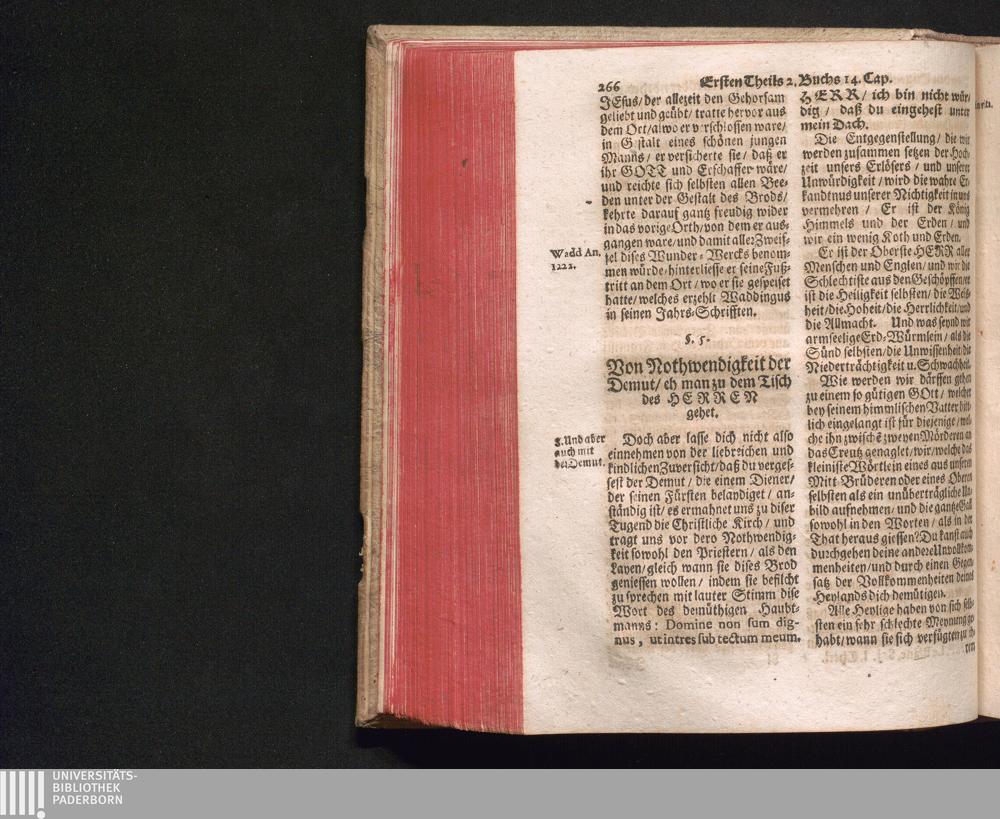 266
Ersten Theils 2. Buchs 14. Cap.
JEsus/ der allezeit den Gehorsam
geliebt und geübt/ tratte hervor aus
dem Ort/ alwo er verschlossen ware/
in Gestalt eines schönen jungen
Manns/ er versicherte sie/ daß er
ihr GOTT und Erschaffer wäre/
und reichte sich selbsten allen Bee-
den unter der Gestalt des Brods/
kehrte darauf gantz freudig wider
in das vorige Orth/ von dem er aus-
gangen ware/ und damit aller Zweif-
fel dises Wunder-Wercks benom-
men würde/ hinterliesse er seine Fuß-
tritt an dem Ort/ wo er sie gespeiset
hatte/ welches erzehlt Waddingus
in seinen Jahrs-Schrifften.
Wadd An.
1222.
§. 5.
Von Nothwendigkeit der
Demut/ eh man zu dem Tisch
des HERREN
gehet.
5. Und aber
auch mit
der Demut.
Doch aber lasse dich nicht also
einnehmen von der liebreichen und
kindlichen Zuversicht/ daß du verges-
sest der Demut/ die einem Diener/
der seinen Fürsten belaydiget/ an-
ständig ist/ es ermahnet uns zu diser
Tugend die Christliche Kirch/ und
tragt uns vor dero Nothwendig-
keit sowohl den Priestern/ als den
Layen/ gleich wann sie dises Brod
geniessen wollen/ indem sie befilcht
zu sprechen mit lauter Stimm dise
Wort des demüthigen Haubt-
manns: Domine non sum dig-
nus, ut intres sub tectum meum.
HERR/ ich bin nicht wür-
dig/ daß du eingehest unter
mein Dach.
Die Entgegenstellung/ die wir
werden zusammen setzen der Hoch-
zeit unsers Erlösers/ und unserer
Unwürdigkeit/ wird die wahre Er-
kandtnus unserer Nichtigkeit in uns
vermehren/ Er ist der König
Himmels und der Erden/ und
wir ein wenig Koth und Erden.
Er ist der Oberste HERR aller
Menschen und Englen/ und wir die
Schlechtiste aus den Geschöpffen/ er
ist die Heiligkeit selbsten/ die Weis-
heit/ die Hoheit/ die Herrlichkeit/ und
die Allmacht. Und was seynd wir
armseelige Erd-Würmlein/ als die
Sünd selbsten/ die Unwissenheit/ die
Niederträchtigkeit u. Schwachheit.
Wie werden wir därffen gehen
zu einem so gütigen GOtt/ welcher
bey seinem himmlischen Vatter bitt-
lich eingelangt ist für diejenige/ wel-
che ihn zwischē zweyen Mörderen an
das Creutz genaglet/ wir/ welche das
kleiniste Wörtlein eines aus unseren
Mitt-Brüderen oder eines Oberen
selbsten als ein unüberträgliche Un-
bild aufnehmen/ und die gantze Gall
sowohl in den Worten/ als in der
That heraus giessen? Du kanst auch
durchgehen deine andere Unvollkom-
menheiten/ und durch einen Gegen-
satz der Vollkommenheiten deines
Heylands dich demütigen.
Alle Heylige haben von sich selb-
sten ein sehr schlechte Meynung ge-
habt/ wann sie sich verfügten zu ih-
ren
UNIVERSITÄTS-
BIBLIOTHEK
PADERBORN